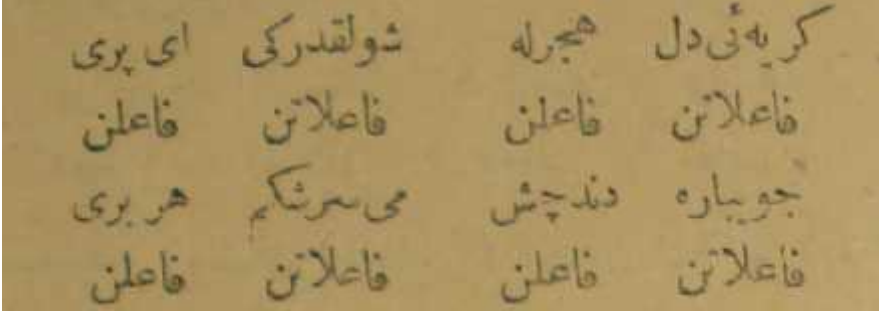 كریه‌ئی دل هجرله شولقدركی ای پری
فاعلاتن فاعلن فاعلاتن فاعلن
جویباره دندچش می سرشكم هر بری
فاعلاتن فاعلن فاعلاتن فاعلن